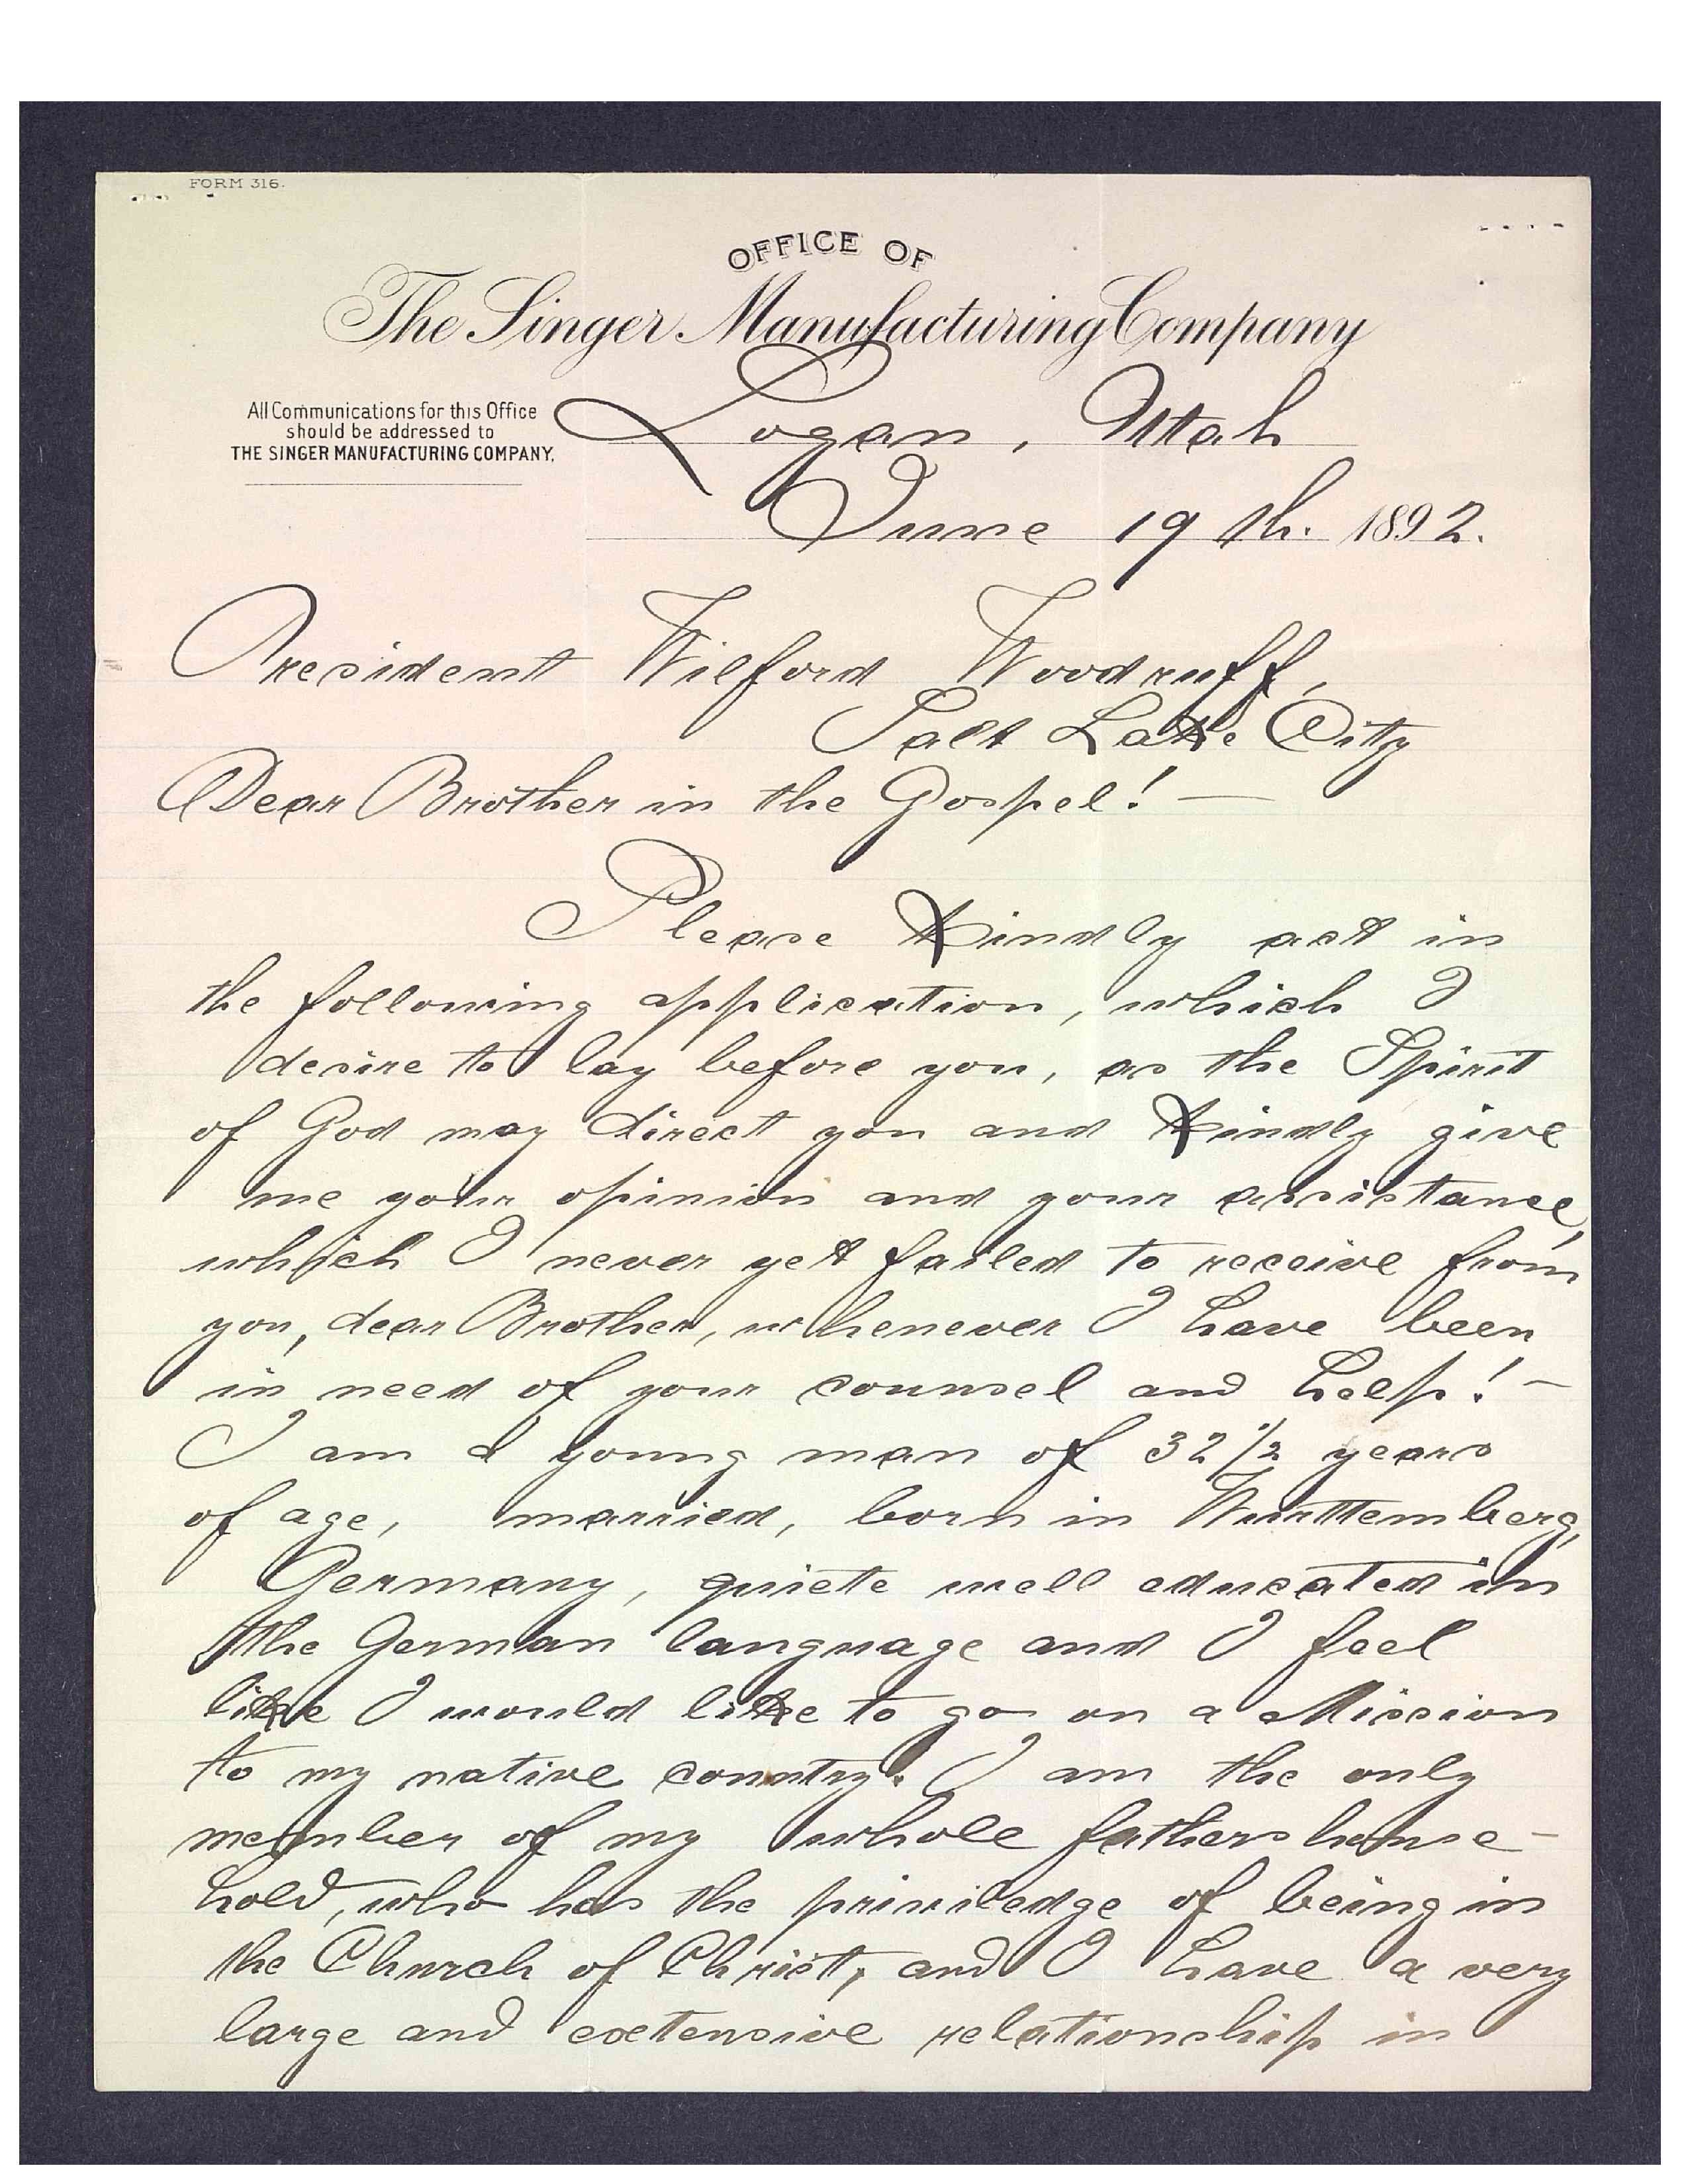 FORM 316.
OFFICE OF
The Singer Manufacturing Company
All Communications for this Office
should be addressed to
THE SINGER MANUFACTURING COMPANY.
Logan, Utah
June 19th. 1892.
President Wilford Woodruff,
Salt Lake City
Dear Brother in the Gospel! —
Please Kindly act in
the following application, which I
desire to lay before you, as the Spirit
of God may direct you and Kindly give
me your opinion and your assistance,
which I never yet failed to receive from
you, dear Brother, whenever I have been
in need of your counsel and help! —
I am a young man of 32 1/2 years
of age, married, born in Wurttemberg,
Germany, quiete well educated in
the German language and I feel
like I would like to go on a Mission
to my native country. I am the only
member of my whole fathers house-
hold, who has the priviledge of being in
the Church of Christ, and I have a very
large and extensive relationship in